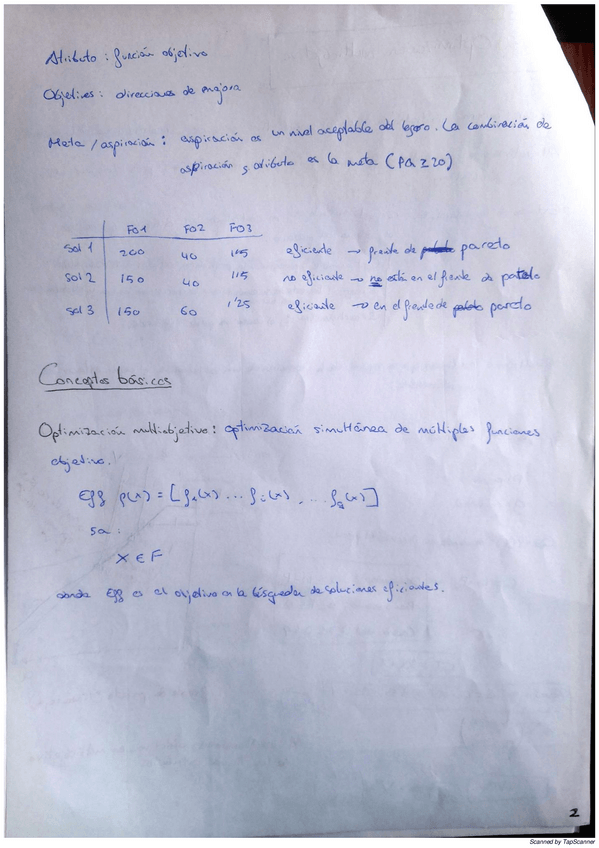 Atributo : función objetivo
Objetivos : direcciones de mejora
Meta / aspiración : aspiración es un nivel aceptable del logro. La combinación de
aspiración y atributo es la meta (PQ ≥ 20)
FO1 FO2 FO3
Sol 1 200 40 1'15 eficiente → frente de pareto
Sol 2 150 40 1'15 no eficiente → no está en el frente de pareto
Sol 3 150 60 1'25 eficiente → en el frente de pareto
Conceptos básicos
Optimización multiobjetivo : optimización simultánea de múltiples funciones
objetivo.
Eff f(x) = [f₁(x) ... fᵢ(x), ... f_q(x)]
sa :
x ∈ F
donde Eff es el objetivo en la búsqueda de soluciones eficientes.
2
Scanned by TapScanner